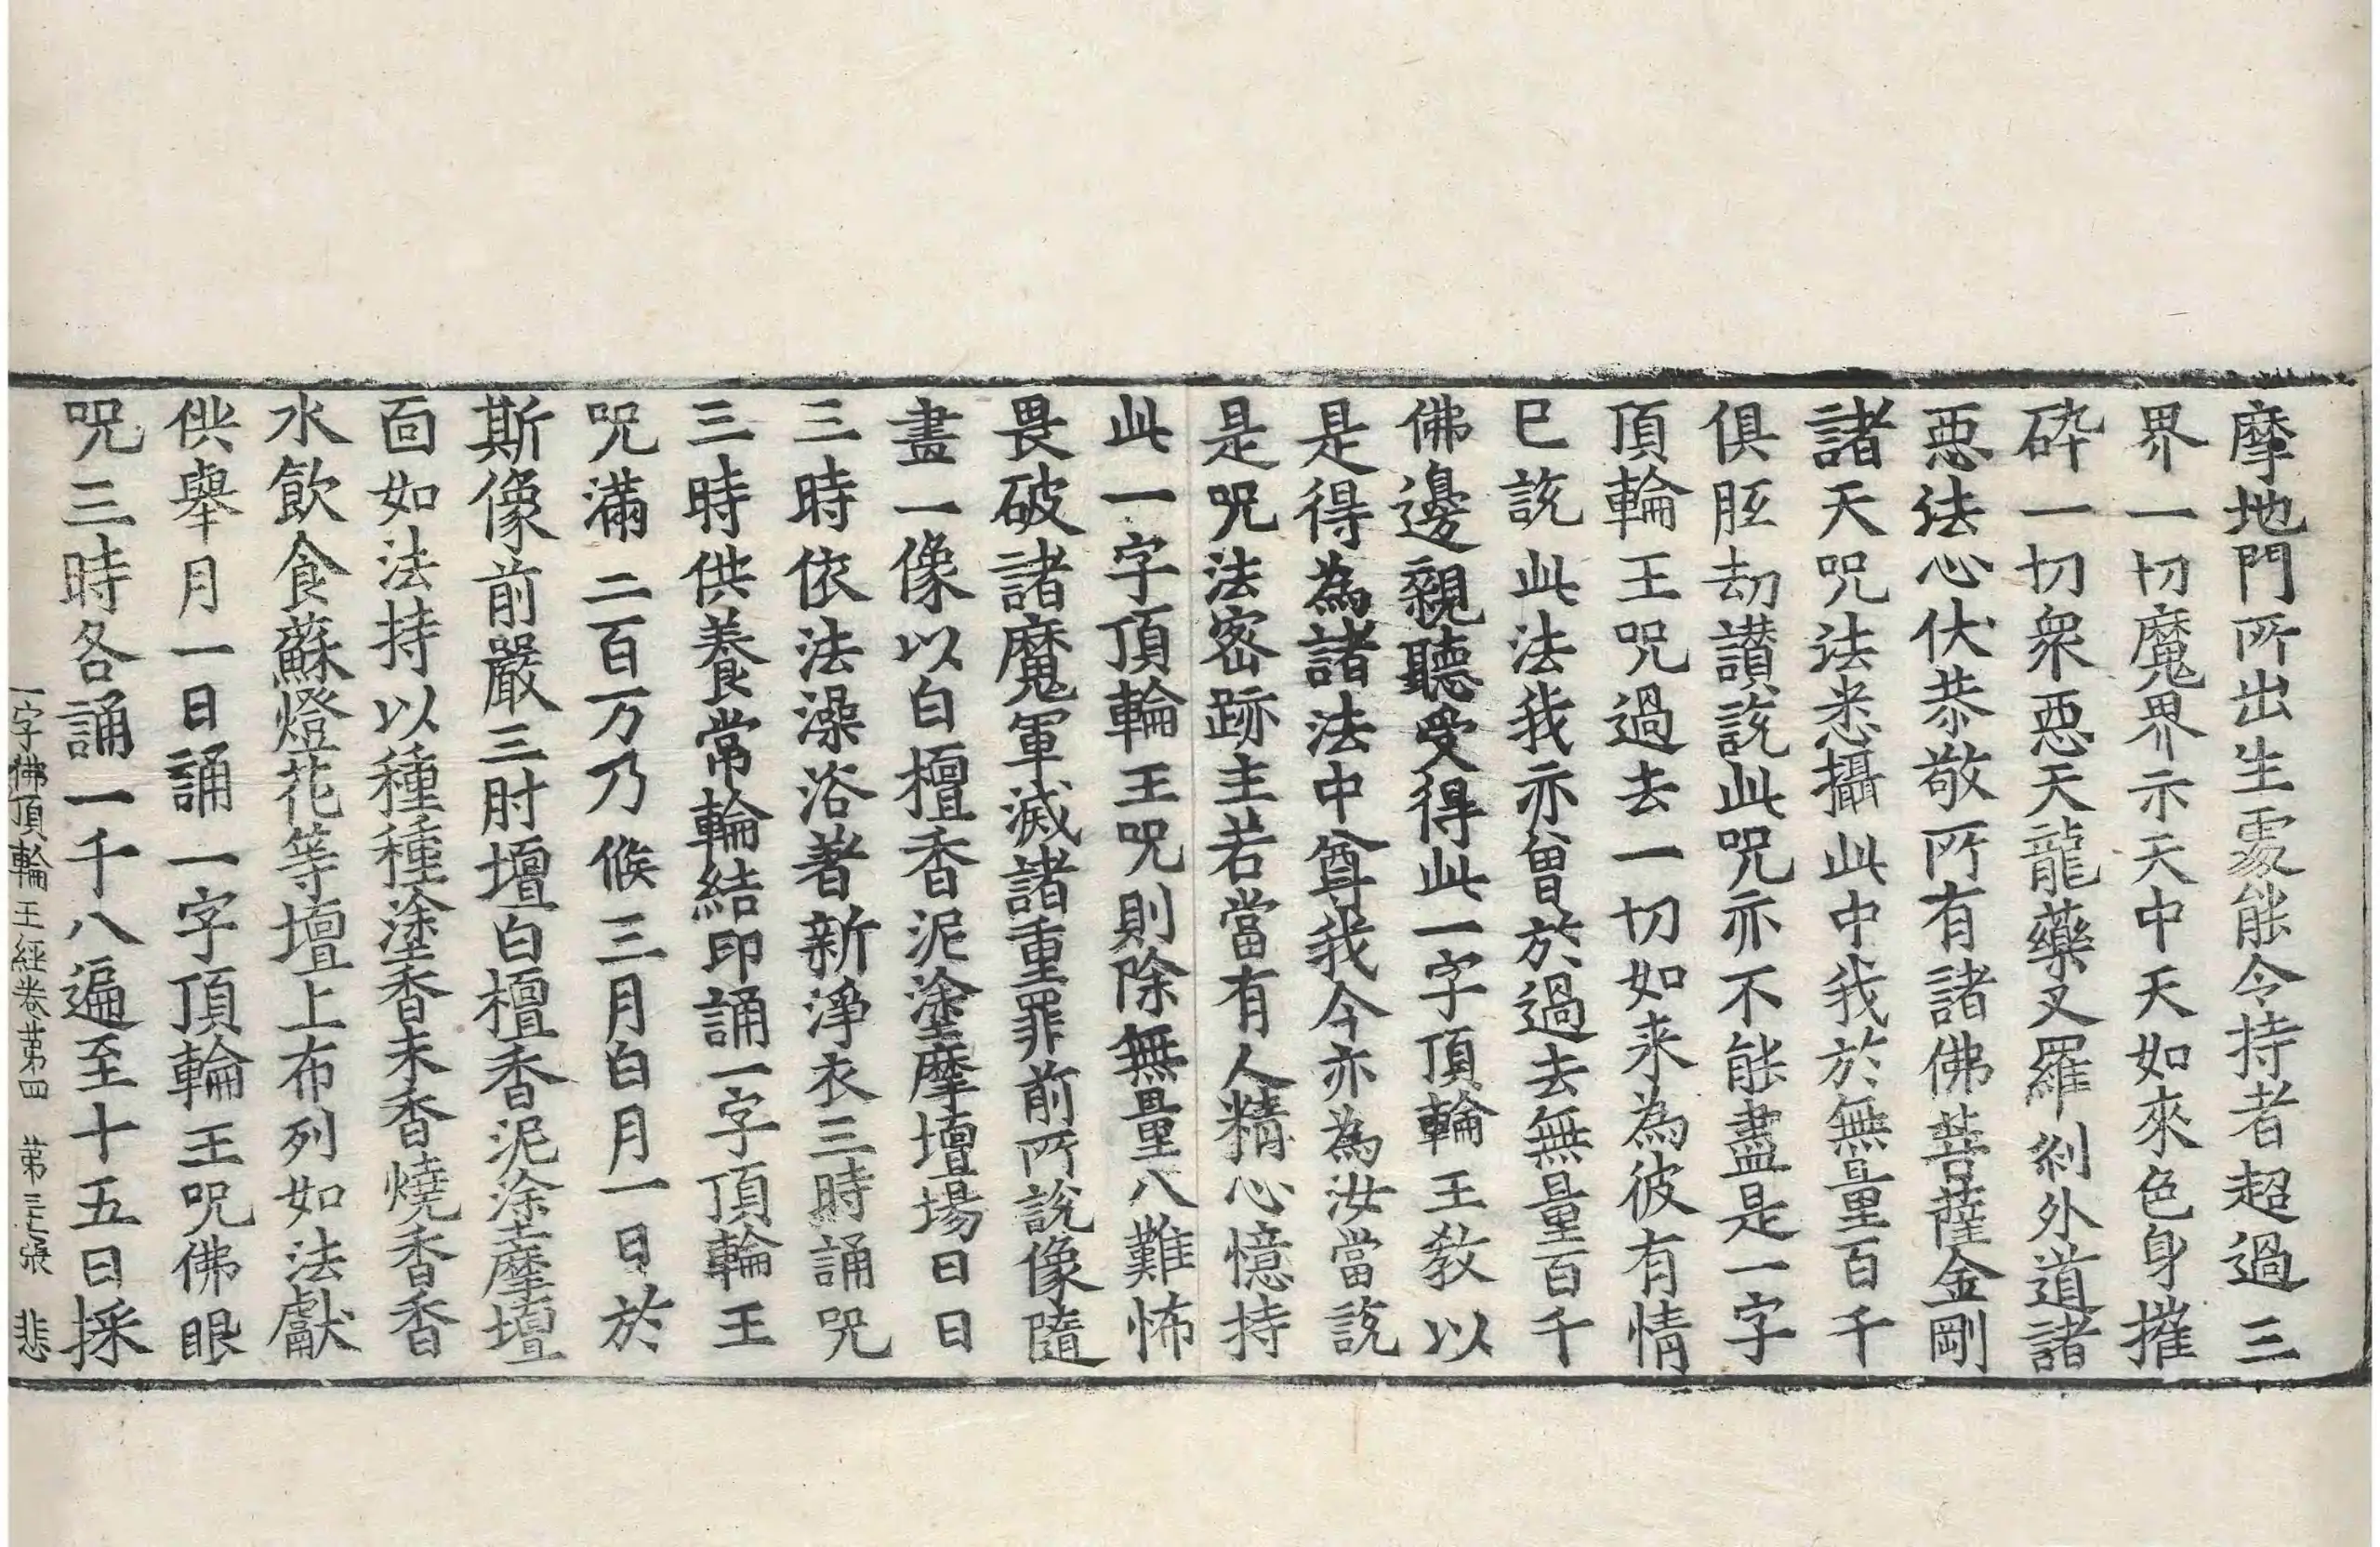 摩地門所出生處能令持者超過三
界一切魔界示天中天如來色身摧
碎一切衆惡天龍藥叉羅刹外道諸
惡法心伏恭敬所有諸佛菩薩金剛
諸天呪法悉攝此中我於無量百千
俱胝劫讃說此呪亦不能盡是一字
頂輪王呪過去一切如来為彼有情
已說此法我亦曾於過去無量百千
佛邊親聽受得此一字頂輪王教以
是得為諸法中尊我今亦為汝當說
是呪法密跡主若當有人精心憶持
此一字頂輪王呪則除無量八難怖
畏破諸魔軍滅諸重罪前所說像隨
畫一像以白檀香泥塗摩壇場日日
三時依法澡浴著新淨衣三時誦呪
三時供養常輪結印誦一字頂輪王
呪滿二百万乃候三月白月一日於
斯像前嚴三肘壇白檀香泥塗摩壇
面如法持以種種塗香末香燒香香
水飲食蘇燈花等壇上布列如法獻
供舉月一日誦一字頂輪王呪佛眼
呪三時各誦一千八遍至十五日採
一字佛頂輪王經卷第四 第三張 悲